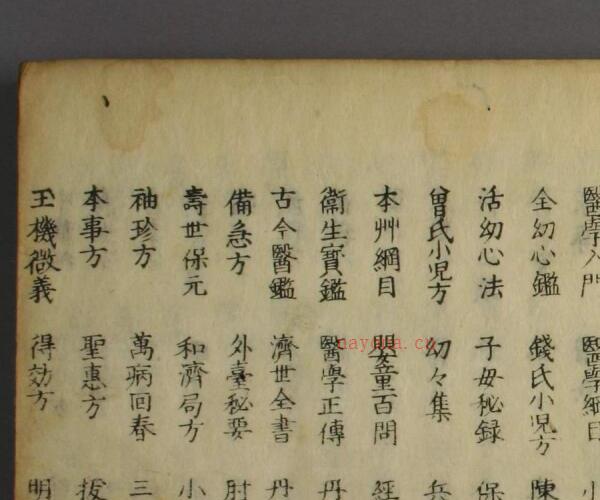 醫學入門 醫學綱目 小
全幼心鑑 錢氏小兒方 陳
活幼心法 子母秘録 保
曽氏小児方 幼々集 兵
本艸綱目 嬰童百問 經
衛生寳鑑 醫學正傳 丹
古今醫鑑 濟世全書 丹
備急方 外臺秘要 肘
壽世保元 和濟局方 小
袖珍方 萬病回春 三
本事方 聖惠方 拔
玉機微義 得効方 明